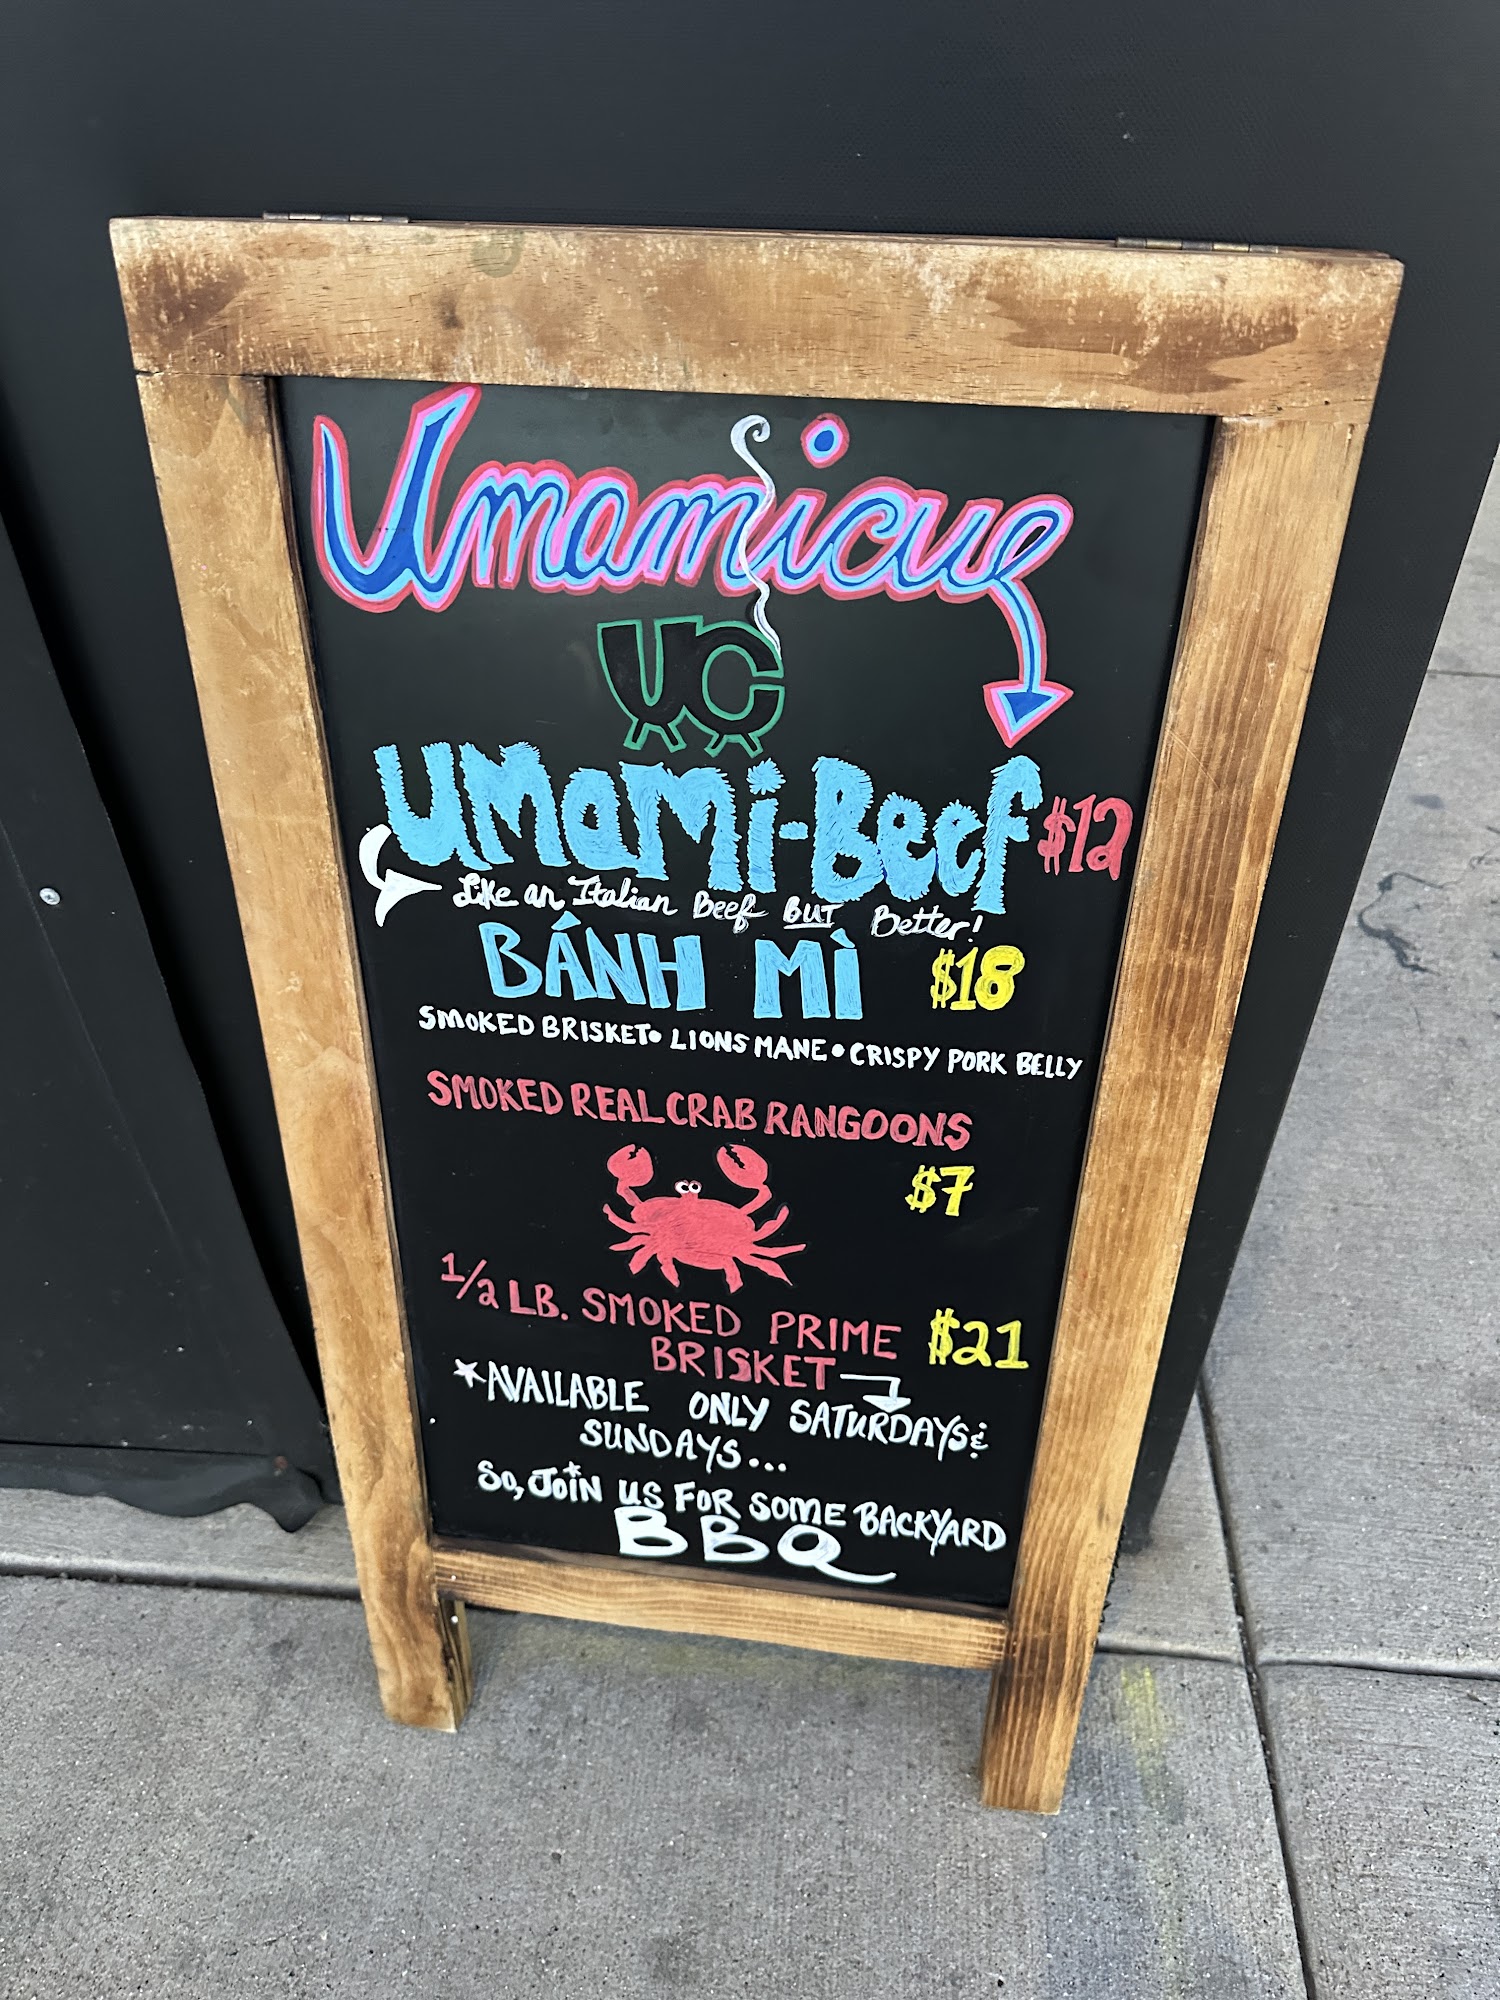 Umamicue
UC
UMAMi-Beef $12
Like an Italian Beef BUT Better!
BÁNH MÌ $18
SMOKED BRISKET • LIONS MANE • CRISPY PORK BELLY
SMOKED REAL CRAB RANGOONS
$7
1/2 LB. SMOKED PRIME
BRISKET $21
*AVAILABLE ONLY SATURDAYS &
SUNDAYS...
SO, JOiN US FOR SOME BACKYARD
BBQ